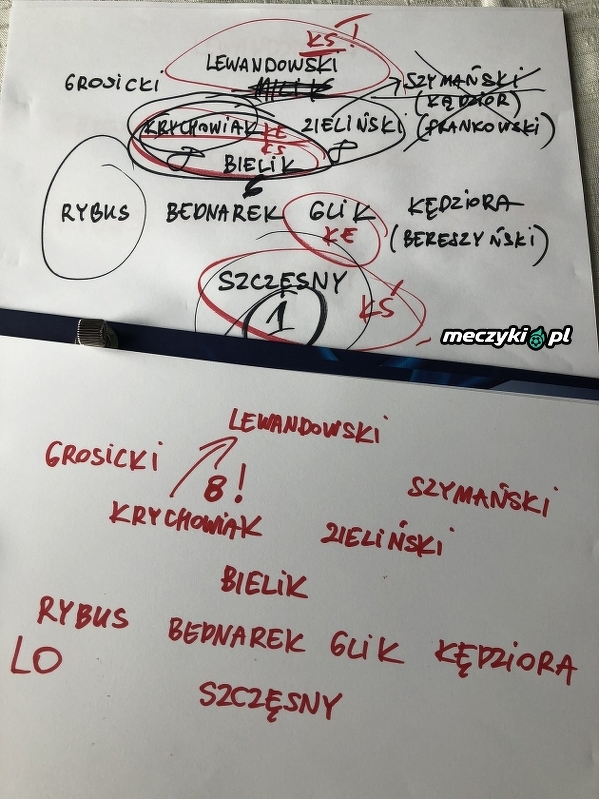 KŚ!
LEWANDOWSKI
GROSICKI SZYMAŃSKI
(KĄDZIOR)
KRYCHOWIAK KE ZIELIŃSKI (FRANKOWSKI)
8 KS 8
BIELIK
6
RYBUS BEDNAREK GLIK KĘDZIORA
KE (BERESZYŃSKI)
SZCZĘSNY
1 KŚ
meczyki.pl
LEWANDOWSKI
GROSICKI
8! SZYMAŃSKI
KRYCHOWIAK ZIELIŃSKI
BIELIK
RYBUS BEDNAREK GLIK KĘDZIORA
LO
SZCZĘSNY